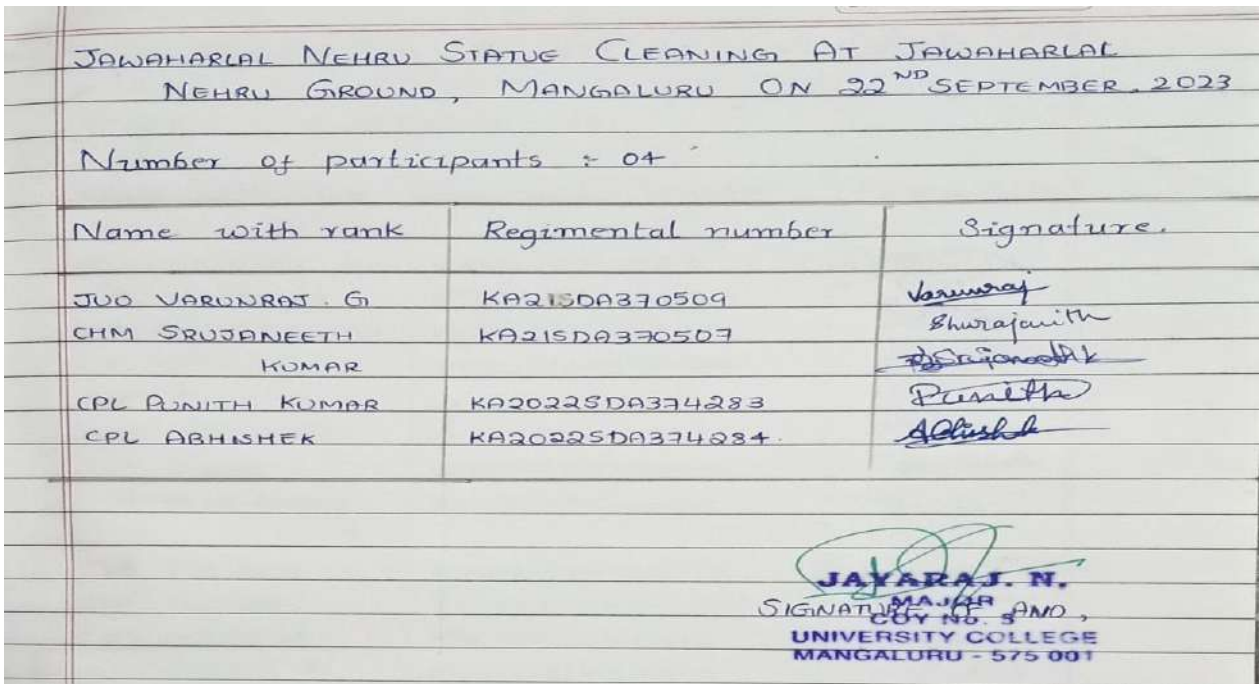 JAWAHARLAL NEHRU STATUE CLEANING AT JAWAHARLAL
NEHRU GROUND, MANGALURU ON 22ND SEPTEMBER, 2023
Number of participants :- 04
Name with rank Regimental number Signature.
JUO VARUNRAJ. G KA21SDA370509 Varunraj
CHM SRUJANEETH KA21SDA370507
KUMAR
CPL PUNITH KUMAR KA2022SDA374283 Punith
CPL ABHISHEK KA2022SDA374284.
JAYARAJ. N.
MAJOR
SIGNATURE OF ANO,
COY No. 5
UNIVERSITY COLLEGE
MANGALURU - 575 001